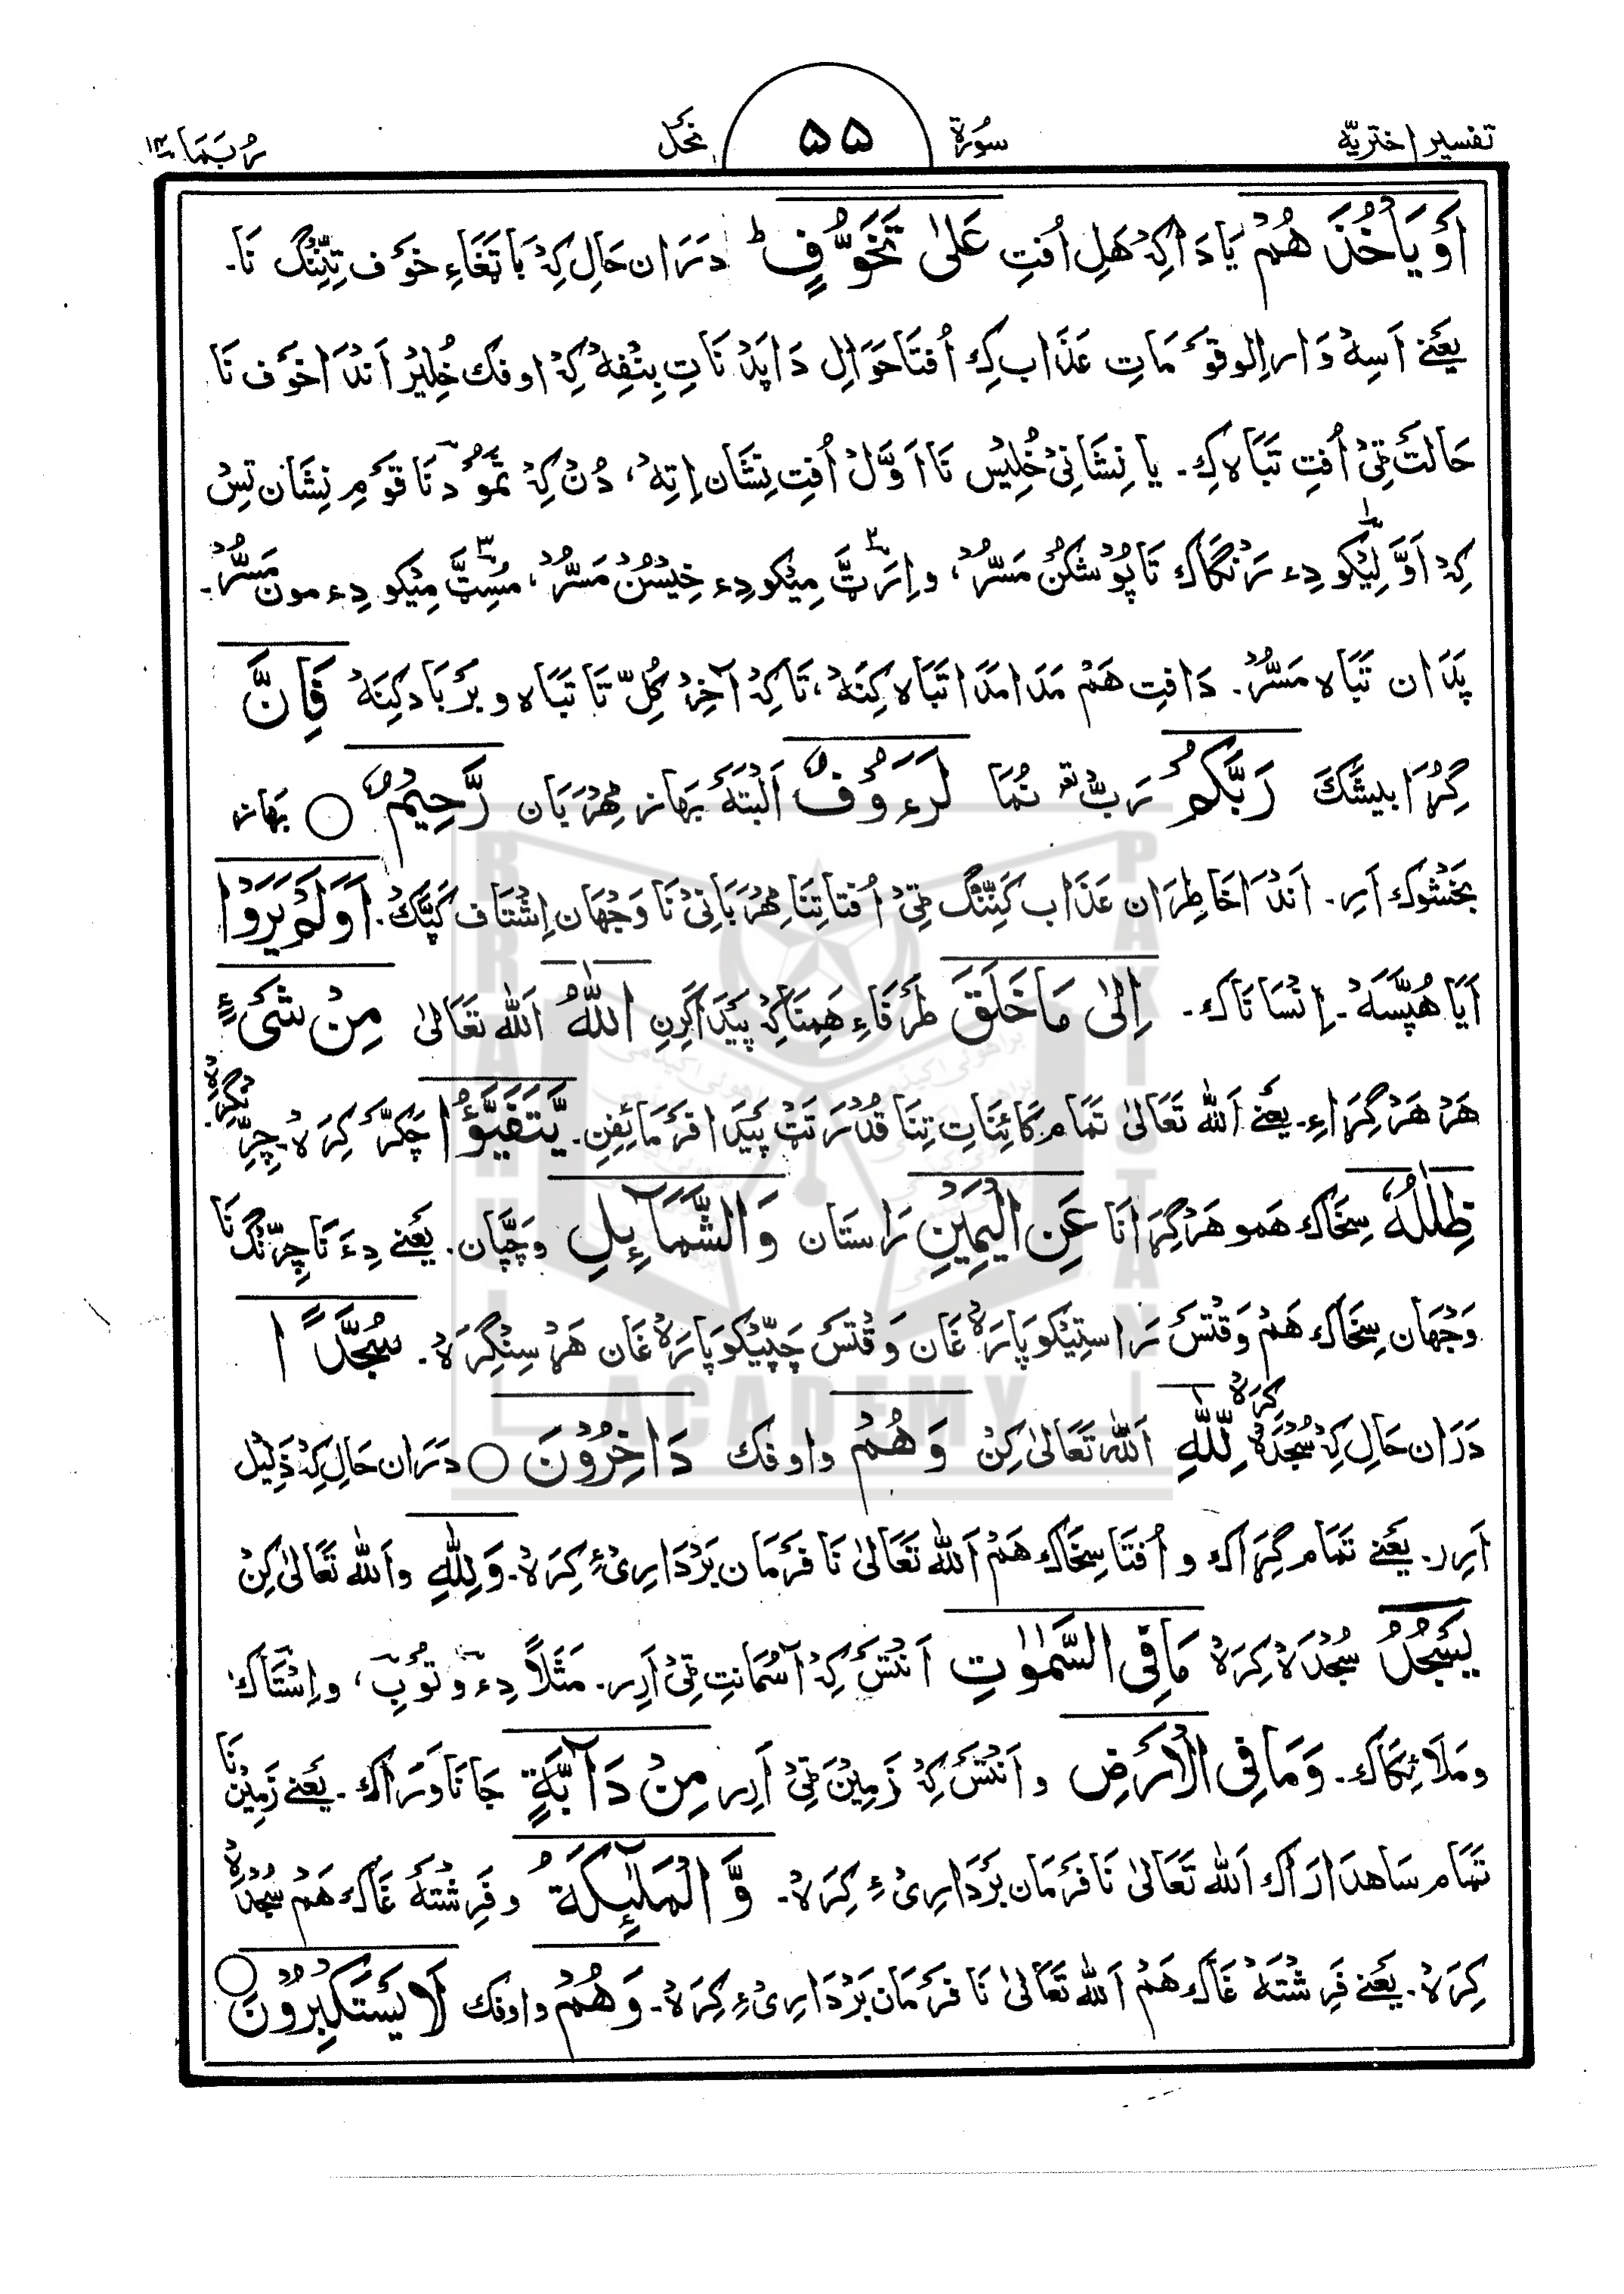 تفسیر اختریّه
سُورَة
۵۵
نحل
رُبَمَا ۱۴
اَوْ يَاْخُذَ هُمْ يَا دَاكِہْ هَلِ اُفتِ عَلٰى تَخَوُّفٍ ؕ دَرَ ان حَالِ كِہْ بَا تَغَاءِ خوَف تِنِّنگ نَا۔
يَعنے اَسِهْ دَار اِلو قوَمَاتِ عَذَاب كِ اُفتَا حَوَالِ دَا پَدْ نَاتِ بِنْفِهْ كِہْ اوفك خُلِيْر اَندَا خوَف نَا
حَالَتَ ٹِیْ اُفتِ تَبَاہ كِ۔ يا نِشَانِیْ خُلِيْس نَا اَوَّلْ اُفتِ نِشَان اِتِهْ، دُنْ كِہْ ثَمُوْدؑ نَا قوَمِ نِشَان تِسْ
كِہْ اَوَّلِيْكو دِء رَنْگَاک تَا پُوْشكُنْ مَسُّرْ، و اِرَٹَّ مِيْكو دِء خِيْسُنْ مَسُّرْ، مُسِٹَّ مِيْكو دِء مون مَسُّرْ۔
پَدَان تَبَاہ مَسُّرْ۔ دَافِتِ هَمْ مَدَا مَدَا تَبَاہ كِنَهْ، تَاكِہْ آخِرْ كُلِّ تَا تَبَاہ و بَربَاد كِنَهْ فَاِنَّ
گُڑَا بيشَّكَ رَبَّكُمْ رَبّ نُمَا لَرَءُوْفٌ اَلْبَتَہْ بَهاز مِهْرَبَان رَّحِيْمٌ ○ بَهاز
بَخشوک اَرِ۔ اَندَا خَاطِرَان عَذَاب كَنِنِّگ ٹِیْ اُفتا تِنَا مِهْرَبَانِیْ نَا وَجْهَان اِشْتَاف كَپَّک۔ اَوَلَمْ يَرَوْا
اَيَا هُرپَسَهْ۔ اِنْسَانَاک۔ اِلٰى مَا خَلَقَ طَرَفَاءِ هَمِنَا كِہْ پَيْدَا كَرِنِ اللّٰهُ اَللّٰه تَعَالىٰ مِنْ شَىْءٍ
هَرْ هَرْ گِڑَاءِ۔ يَعنے اَللّٰه تَعَالىٰ تَمَام كَائِنَاتِ تِنَا قُدْرَتَتْ پَيْدَا فَرْمَائِفِنِ۔ يَّتَفَيَّؤُا چَكَّر كِرَہْ۔ چِرِّنگِرَہْ
ظِلٰلُهٗ سِخَاک هَمو هَرْ گِڑَانَا عَنِ الْيَمِيْنِ رَاستَان وَالشَّمَآئِلِ وچَپَّان۔ يَعنے دِءَ نَا چِرِّنگ نَا
وَجْهَان سِخَاک هَمْ وَقْتَسْ رَاستِيكو پَارَہْ غَان وَقْتَسْ چَپِّيكو پَارَہْ غَان هَرْسِنْگِرَہْ۔ سُجَّدًا
دَرَان حَالِ كِہْ سُجْدَہْ كِرَہْ لِلّٰهِ اَللّٰه تَعَالىٰ كِنْ وَهُمْ واوفك دَاخِرُوْنَ ○ دَرَان حَالِ كِہْ ذَلِيْل
اَرِر۔ يَعنے تَمَام گِڑَاک و اُفتَا سِخَاک هَمْ اَللّٰه تَعَالىٰ نَا فَرْمَان بَرْدَارِیْ ءِ كِرَہْ۔ وَلِلّٰهِ و اَللّٰه تَعَالىٰ كِنْ
يَسْجُدُ سُجْدَہْ كِرَہْ مَا فِى السَّمٰوٰتِ اَنْتَسْ كِہْ آسْمَانتِ ٹِیْ اَرِر۔ مَثَلاً دِء و تُوبِ، و اِسْتَاک
و مَلَائِكَاک۔ وَمَا فِى الْاَرْضِ و اَنْتَسْ كِہْ زَمِيْن ٹِیْ اَرِر مِنْ دَآبَّةٍ جَانَاوَرَاک۔ يَعنے زَمِيْن نَا
تَمَام سَاهدَارَاک اَللّٰه تَعَالىٰ نَا فَرْمَان بَرْدَارِیْ ءِ كِرَہْ۔ وَّالْمَلٰٓئِكَةُ و فَرِشْتَهْ غَاک هَمْ سُجْدَہْ
كِرَہْ۔ يَعنے فَرِشْتَهْ غَاک هَمْ اَللّٰه تَعَالىٰ نَا فَرْمَان بَرْدَارِیْ ءِ كِرَہْ۔ وَهُمْ واوفك لَا يَسْتَكْبِرُوْنَ ○
BRAHUI
ACADEMY
PAKISTAN